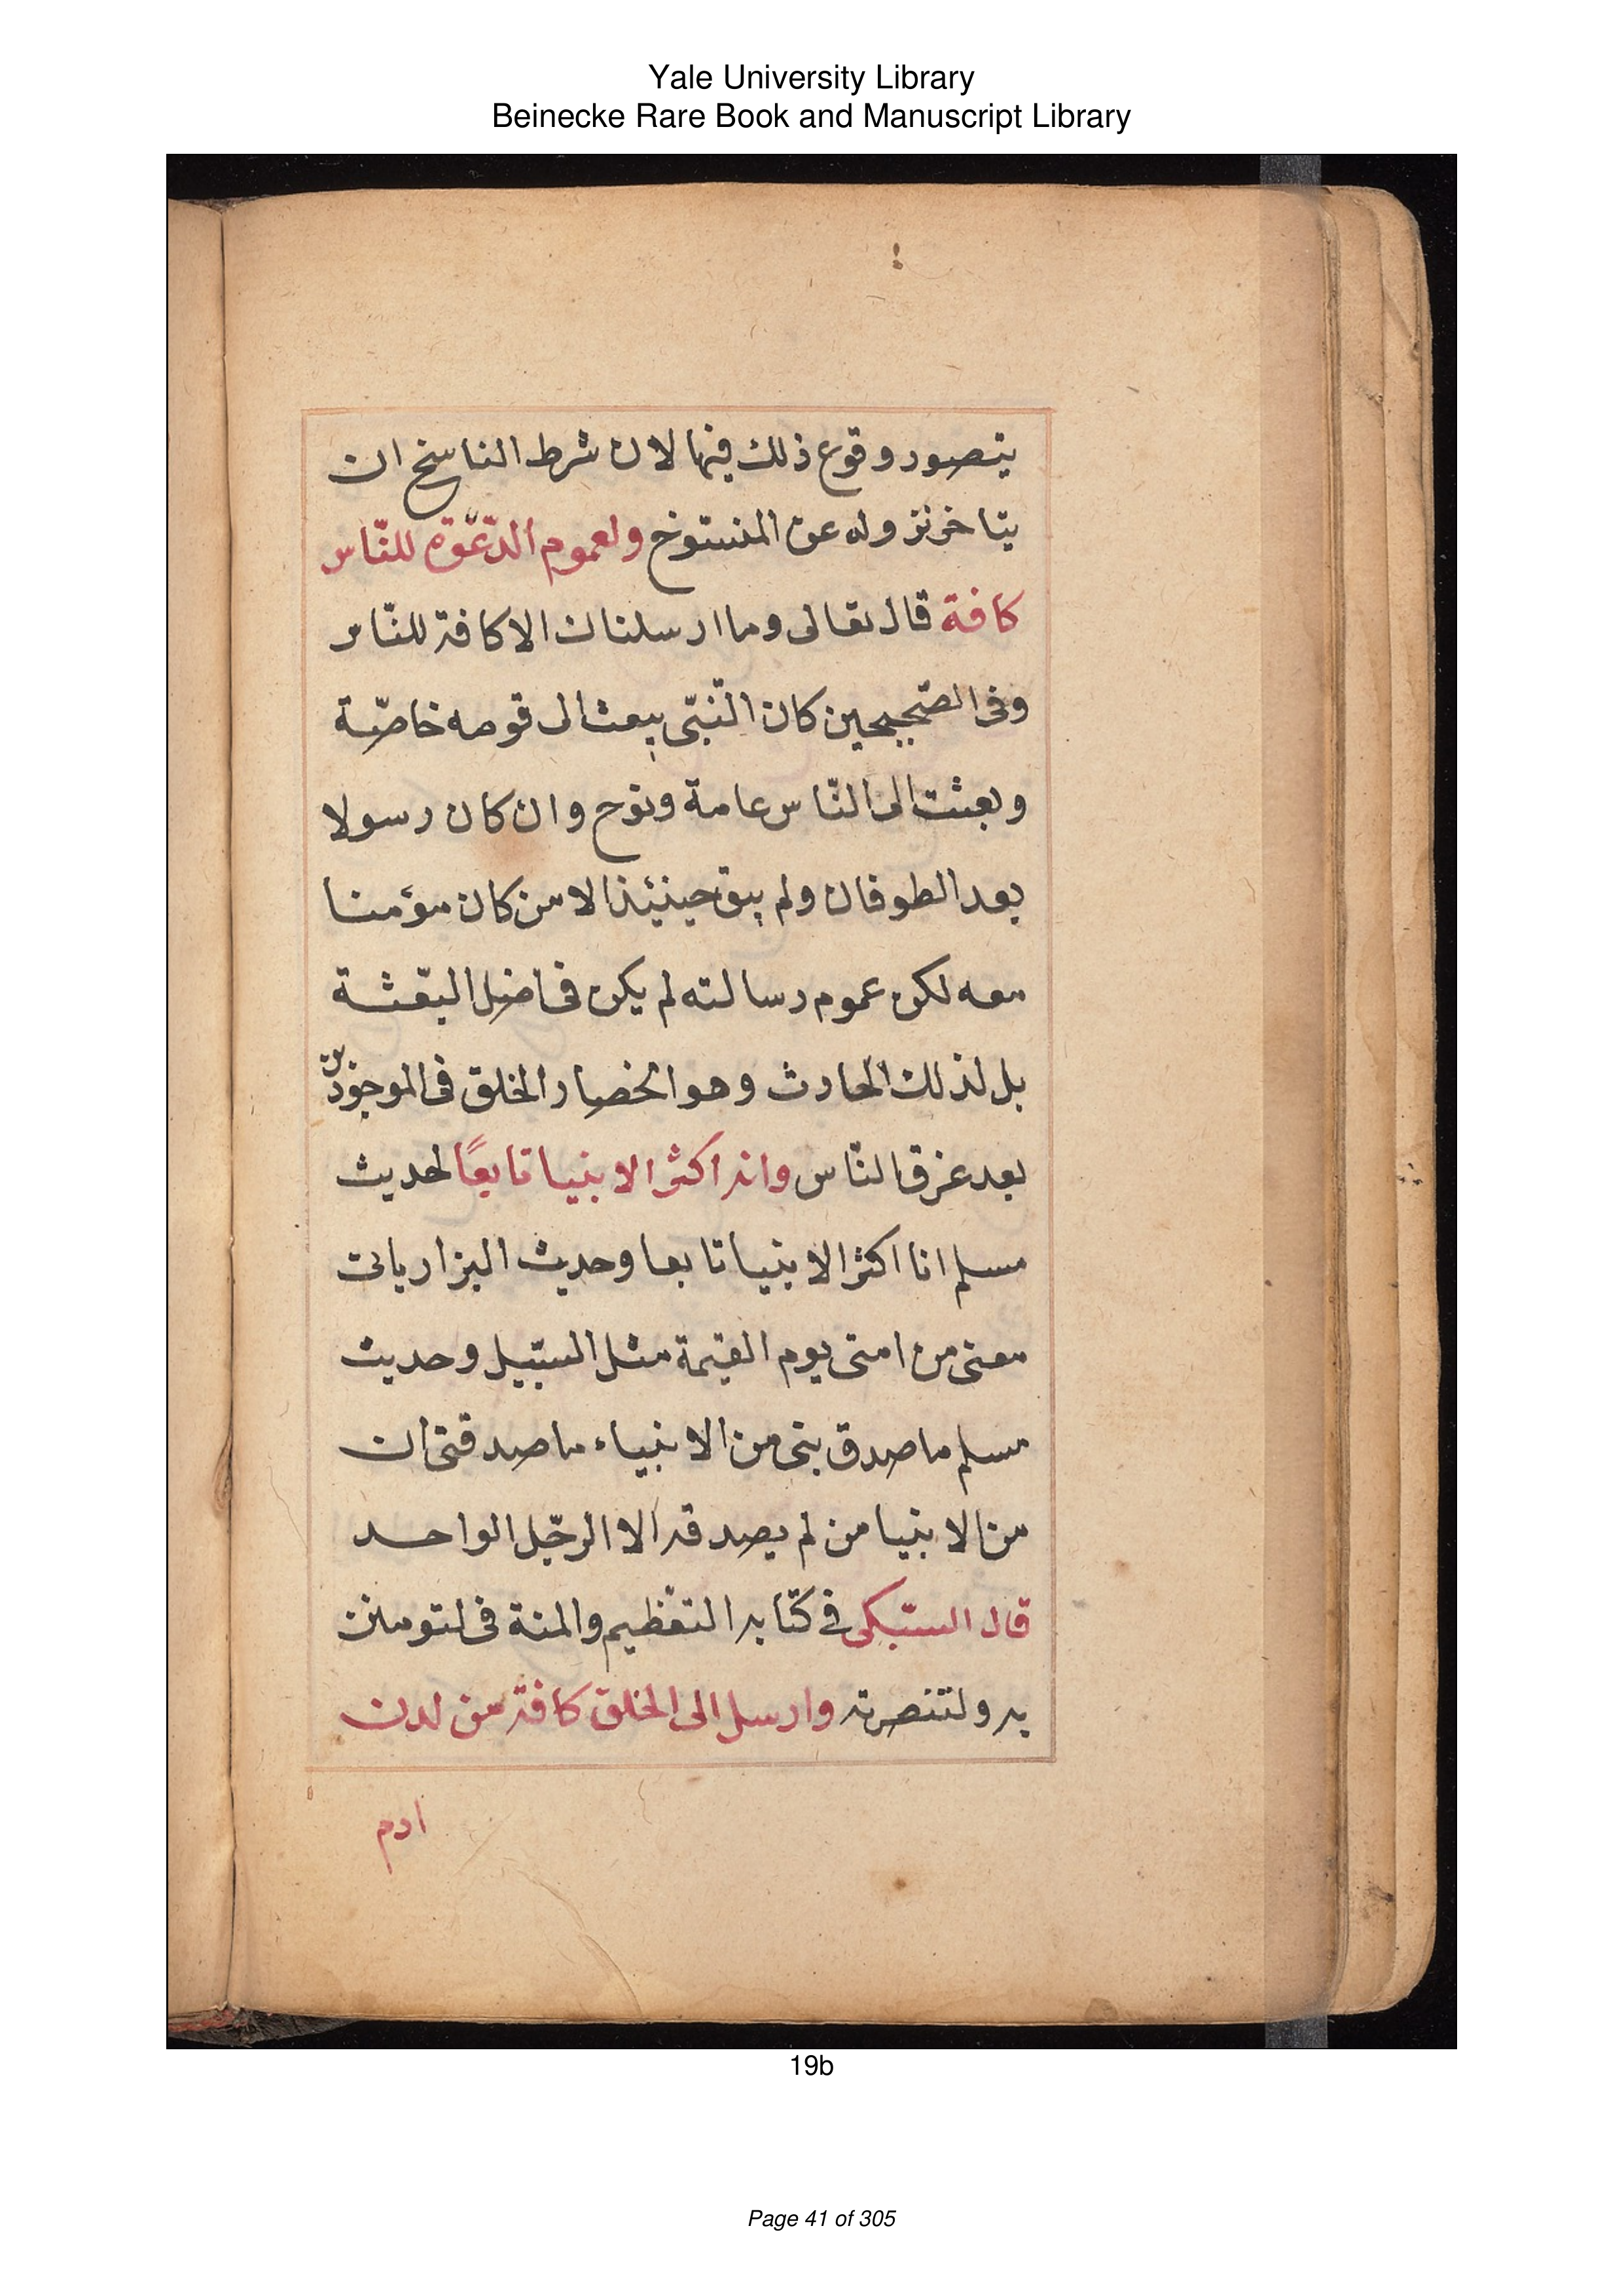 Yale University Library
Beinecke Rare Book and Manuscript Library
يتصور وقوع ذلك فيها لان شرط الناسخ ان
يتاخر نزوله عن المنسوخ ولعموم الدّعوة للنّاس
كافة قال تعالى وما ارسلناك الا كافة للنّاس
وفى الصّحيحين كان النّبىّ يبعث الى قومه خاصّة
وبعثت الى النّاس عامة ونوح وان كان رسولا
بعد الطوفان ولم يبق حينئذ الا من كان مؤمنا
معه لكن عموم رسالته لم يكن فى اصل البعثة
بل لذلك الحادث وهو انحصار الخلق فى الموجودين
بعد غرق النّاس وانه اكثر الانبيا تابعًا لحديث
مسلم انا اكثر الانبيا تابعا وحديث البزار ياتى
معى من امتى يوم القيمة مثل السّيل وحديث
مسلم ما صدق نبى من الانبياء ما صدقنى ان
من الانبيا من لم يصدقه الا الرجل الواحد
قال السّبكى فى كتابه التعظيم والمنة فى لتومنن
به ولتنصرنه وارسل الى الخلق كافة من لدن
ادم
19b
Page 41 of 305